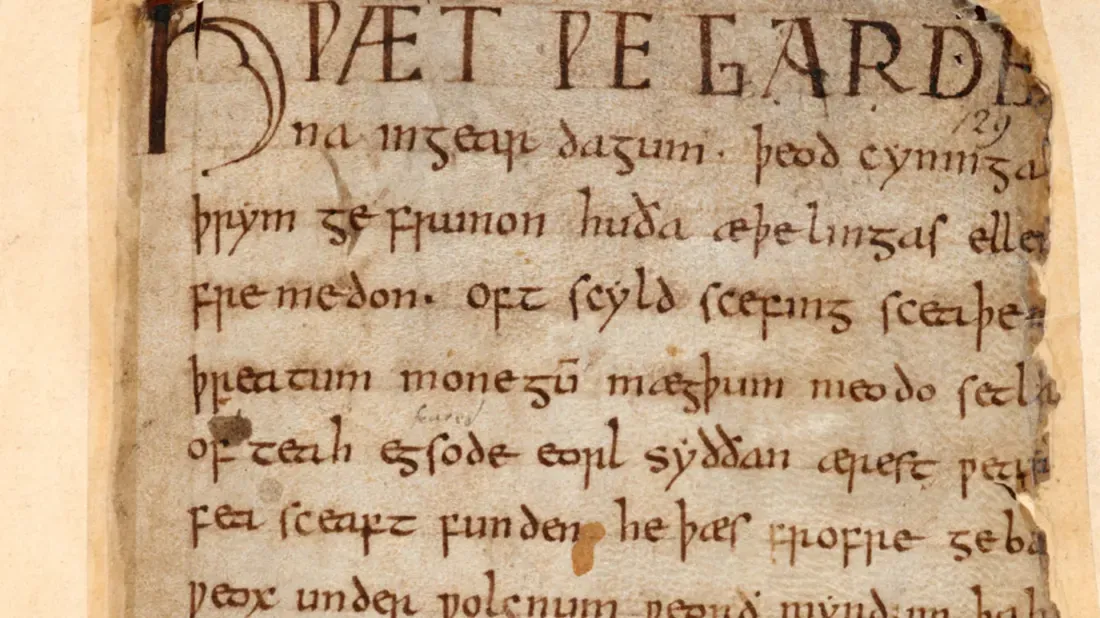 HǷÆT ǷE GARDE
129
na ingear dagum. þeod cyninga
þrym ge frunon huða æþelingas ellen
fremedon. oft scyld scefing sceaþe
þreatum monegū mægþum meodo setla
of teah egsode eorl syððan ærest ƿear
fea sceaft funden he þæs frofre geba
ƿeox under ƿolcnum ƿeorð myndum þah